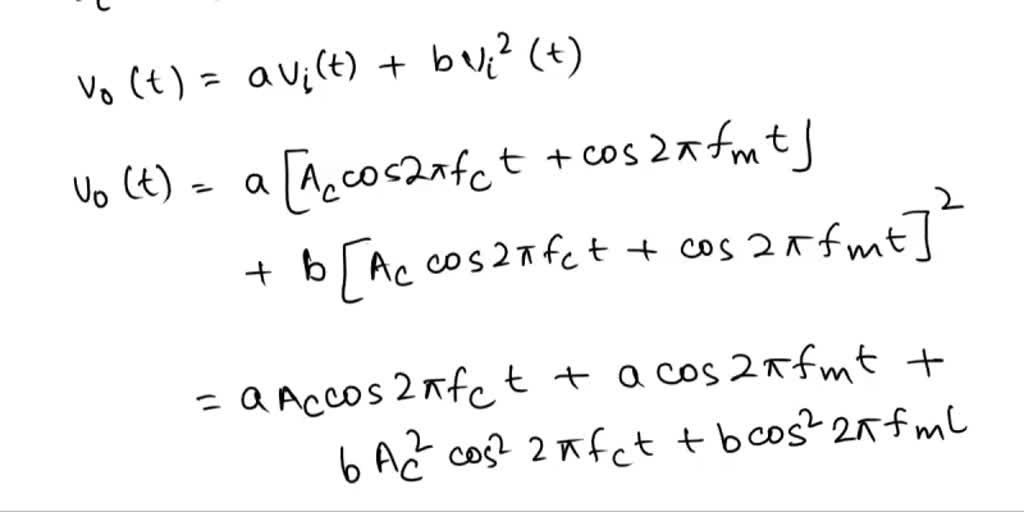 v₀(t) = a vᵢ(t) + b vᵢ² (t)
v₀(t) = a [A_c cos2πf_c t + cos 2πf_m t]
+ b [A_c cos2πf_c t + cos 2πf_m t]²
= a A_c cos 2πf_c t + a cos 2πf_m t +
b A_c² cos² 2πf_c t + b cos² 2πf_m